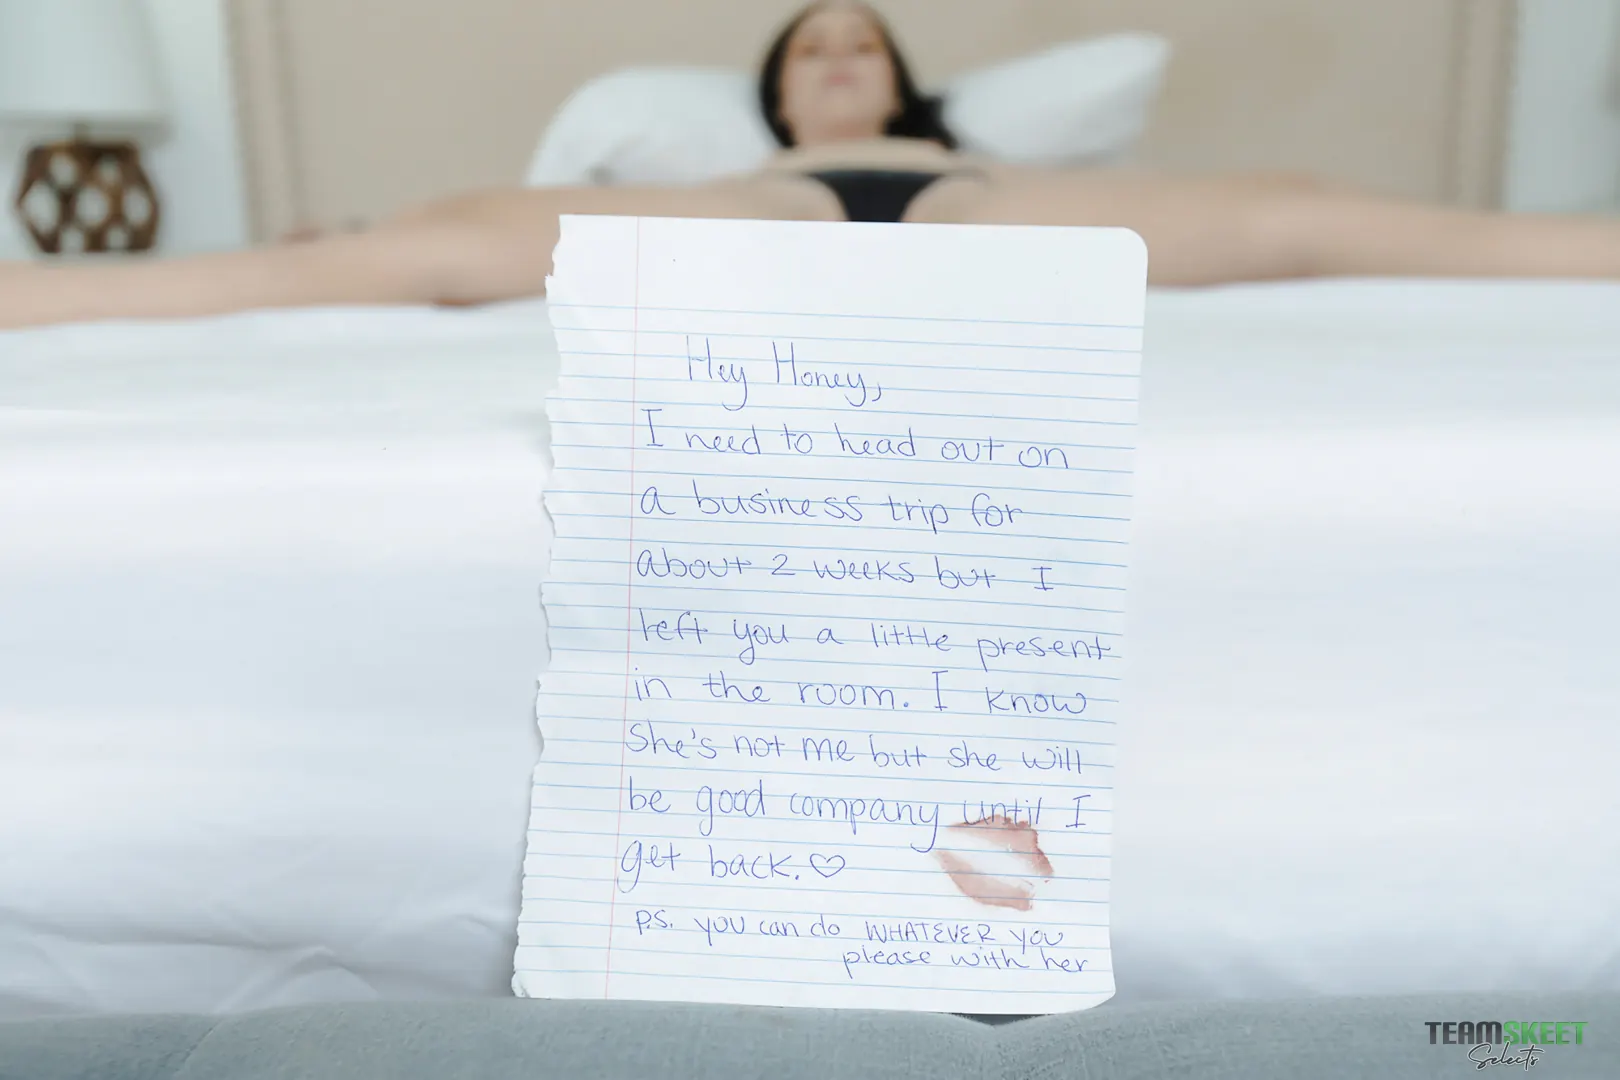 Hey Honey,
I need to head out on
a business trip for
about 2 weeks but I
left you a little present
in the room. I know
she's not me but she will
be good company until I
get back.♡
P.S. you can do WHATEVER you
please with her
TEAMSKEET
Selects